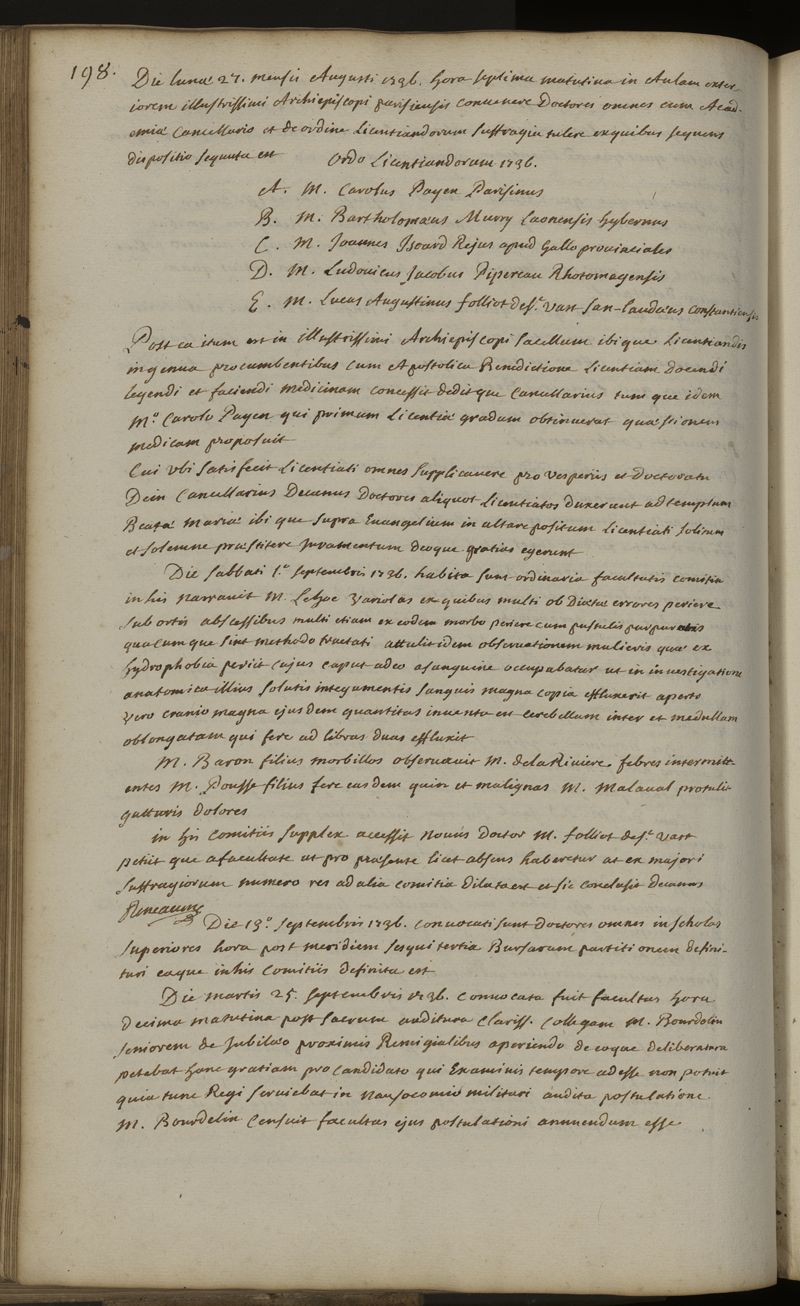 198.
Die lunæ 27. mensis Augusti 1736. hora septima matutina in Aulam exter-
iorem illustrissimi Archiepiscopi parisiensis convenere Doctores omnes cum Acad-
emiæ Cancellario et de ordine Licentiandorum suffragia tulere ex quibus sequens
dispositio sequuta est Ordo Licentiandorum 1736.
A. M. Carolus Payen Parisinus
B. M. Bartholomæus Murry Laonensis hybernus
C. M. Joannes Isoard Rejus apud Gallo provinciales
D. M. Ludovicus Jacobus Pipereau Rhotomagensis
E. M. Lucas Augustinus folliot des.t vast san-laudæus constantiensis
Post ea itum est in illustrissimi Archiepiscopi sacellum ibique Licentiandis
in genua procumbentibus cum Apostolica Benedictione Licentiam docendi
legendi et faciendi medicinam concessit deditque Cancellarius tum que idem
M.o Carolo Payen qui primum Licentiæ gradum obtinuerat quæstionem
medicam proposuit
Cui ubi satisfecit Licentiati omnes supplicavere pro vesperiis et doctoratu
Dein Cancellarius Decanus Doctores aliquot Licentiatos duxerunt ad templum
Beatæ Mariæ ibi que supra Evangelium in altare positum Licentiati solitum
et solemne præstitere Juramentum deoque gratias egerunt
Die sabbati 1.a septembris 1736. habita sunt ordinaria facultatis comitia
in his narravit M. Lehoc variolas ex quibus multi ob Diætæ errores periere
sub ortis abscessibus multi etiam ex eodem morbo periere cum pustulis purpuratis
quacumque sint methodo tractati attulit idem observationem mulieris quæ ex
hydrophobia periit cujus caput adeo a sanguine occupabatur ut in investigatione
anatomica illius solutis integumentis sanguis magna copia effluxerit aperto
vero cranio magna ejusdem quantitas inventa est cerebellum inter et medullam
oblongatam qui fere ad libras duas effluxit
M. Baron filius morbillos observavit M. de la Riviere febres intermitt-
entes M. Pousse filius fere easdem quin et malignas M. Malaval protulit
gutturis dolores
in his comitiis supplex accessit novus Doctor M. folliot des.t vast
petiit que a facultate ut pro præsente licet absens haberetur at ex majori
suffragiorum numero res ad alia comitia dilata est et sic conclusit decanus
Reneaume
Die 13.o septembris 1736. convocati sunt doctores omnes in scholas
superiores hora post meridiem sesqui tertia Bursarum partitionem defini-
turi eaque in his Comitiis definita est
Die martis 25. septembris 1736. convocata fuit facultas hora
decima matutina post sacrum auditura Clariss. Collegam M. Bourdelin
seniorem de Jubilæo proximis Remigialibus aperiendo de eoque deliberatura
petebat hanc gratiam pro candidato qui Examinis tempore adesse non potuit
quia tunc Regi serviebat in nausocomio militari audita postulatione
M. Bourdelin Censuit facultas ejus postulationi annuendum esse